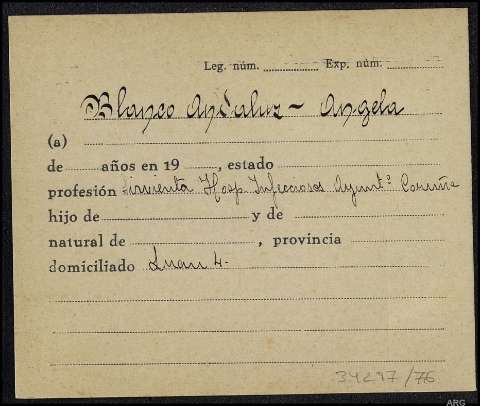 Leg. núm. Exp. núm.
Blanco Andaluz - Angela
(a)
de años en 19 , estado
profesión Sirvienta Hosp. Infecciosos Ayunt.º Coruña
hijo de y de
natural de , provincia
domiciliado Juan 4.
34297/76
ARG